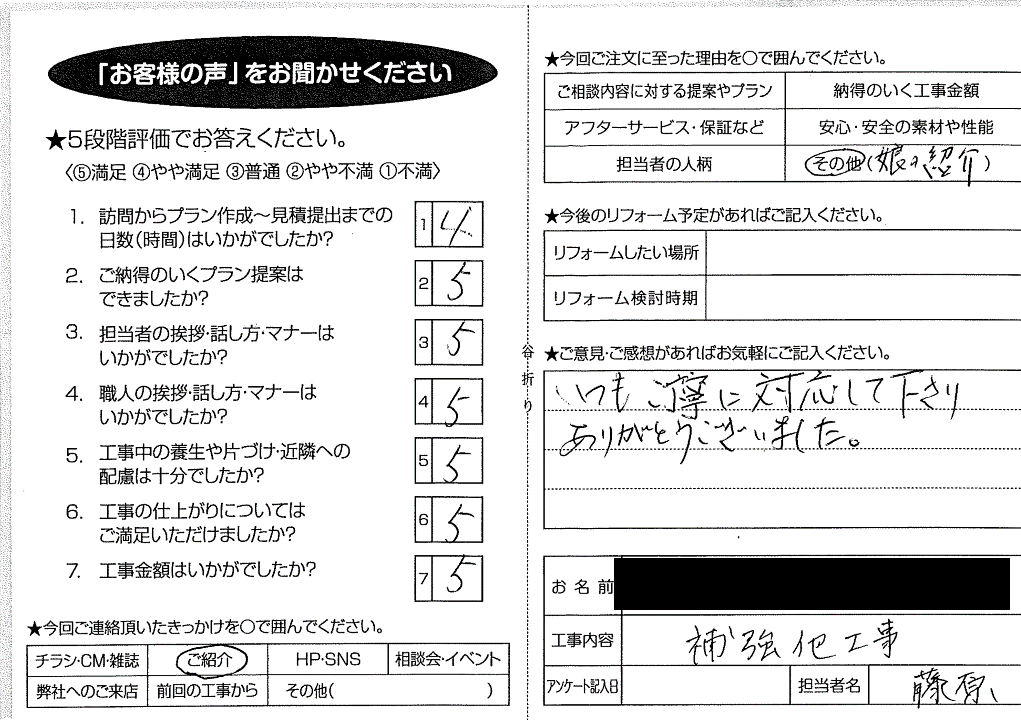 「お客様の声」をお聞かせください
★5段階評価でお答えください。
〈⑤満足 ④やや満足 ③普通 ②やや不満 ①不満〉
1. 訪問からプラン作成〜見積提出までの
日数(時間)はいかがでしたか?
1 4
2. ご納得のいくプラン提案は
できましたか?
2 5
3. 担当者の挨拶・話し方・マナーは
いかがでしたか?
3 5
4. 職人の挨拶・話し方・マナーは
いかがでしたか?
4 5
5. 工事中の養生や片づけ・近隣への
配慮は十分でしたか?
5 5
6. 工事の仕上がりについては
ご満足いただけましたか?
6 5
7. 工事金額はいかがでしたか?
7 5
★今回ご連絡頂いたきっかけを〇で囲んでください。
チラシ・CM・雑誌 ご紹介 HP・SNS 相談会・イベント
弊社へのご来店 前回の工事から その他( )
谷折り
★今回ご注文に至った理由を〇で囲んでください。
ご相談内容に対する提案やプラン 納得のいく工事金額
アフターサービス・保証など 安心・安全の素材や性能
担当者の人柄 その他(娘の紹介)
★今後のリフォーム予定があればご記入ください。
リフォームしたい場所
リフォーム検討時期
★ご意見・ご感想があればお気軽にご記入ください。
いつもご寧に対応して下さり
ありがとうございました。
お名前
工事内容 補強他工事
アンケート記入日 担当者名 藤原